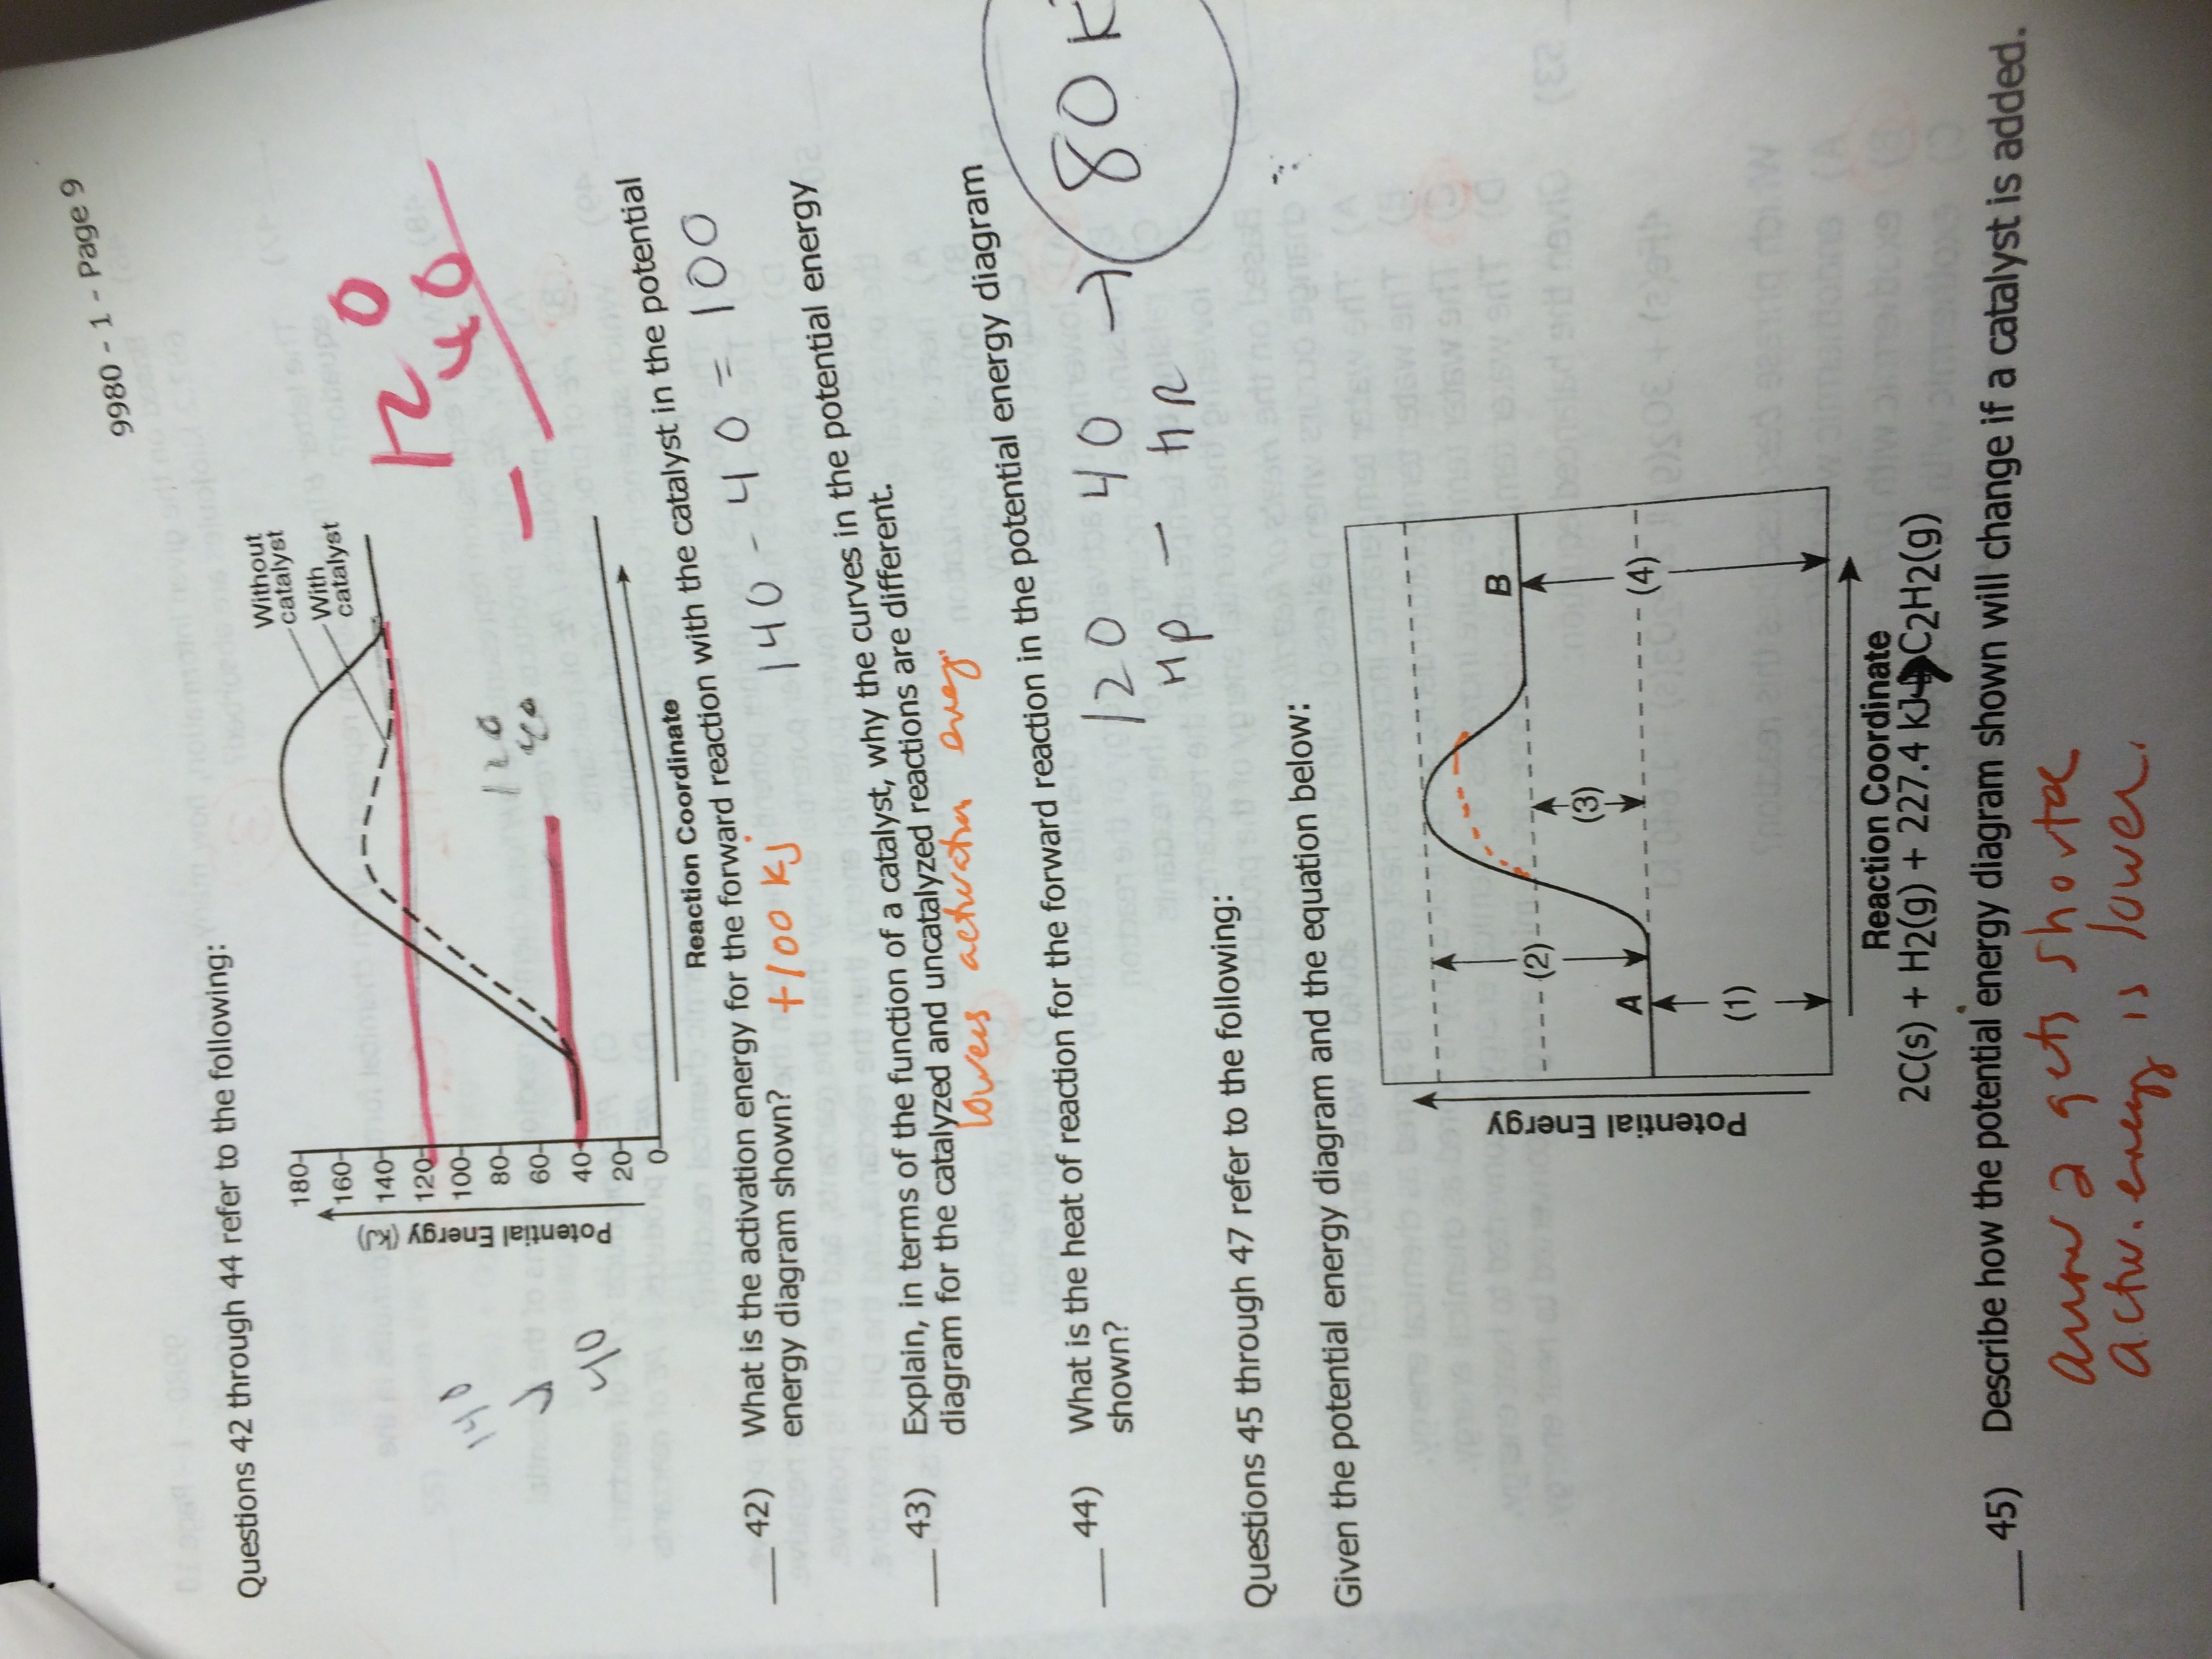 9980 - 1 - Page 9
Questions 42 through 44 refer to the following:
Potential Energy (kJ)
180
160
140
120
100
80
60
40
20
0
Without
catalyst
With
catalyst
Reaction Coordinate
140
40
120
40
120
40
42) What is the activation energy for the forward reaction with the catalyst in the potential
energy diagram shown? +100 kJ 140 - 40 = 100
43) Explain, in terms of the function of a catalyst, why the curves in the potential energy
diagram for the catalyzed and uncatalyzed reactions are different.
lowers activation energy
44) What is the heat of reaction for the forward reaction in the potential energy diagram
shown?
120 - 40 → 80 k
Hp - HR
Questions 45 through 47 refer to the following:
Given the potential energy diagram and the equation below:
Potential Energy
A
B
(1)
(2)
(3)
(4)
Reaction Coordinate
2C(s) + H2(g) + 227.4 kJ → C2H2(g)
45) Describe how the potential energy diagram shown will change if a catalyst is added.
arrow 2 gets shorter
activ. energy is lower.